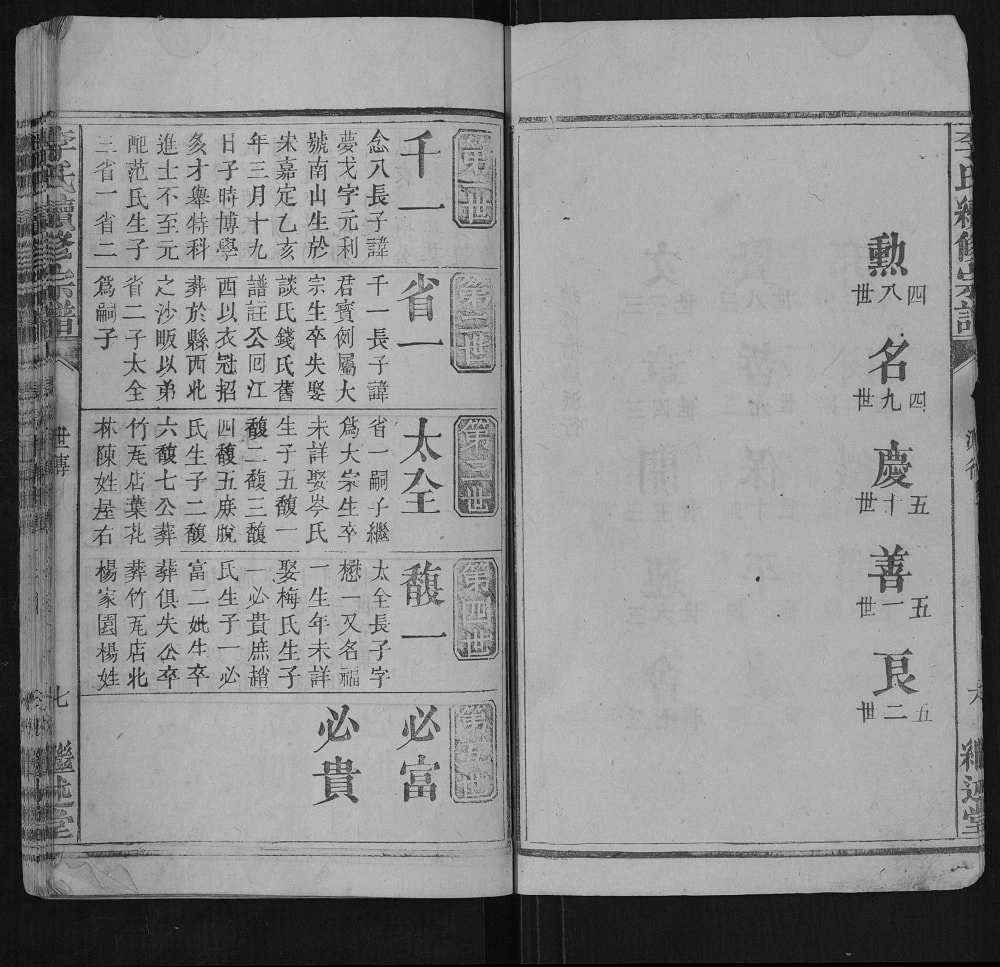 李氏續修宗譜
派行
六
繼述堂
勲
四八世
名
四九世
慶
五十世
善
五一世
良
五二世
第一世
千一
念八長子諱
夢戈字元利
號南山生於
宋嘉定乙亥
年三月十九
日子時博學
多才舉特科
進士不至元
配范氏生子
三省一省二
第二世
省一
千一長子諱
君寳例屬大
宗生卒失娶
談氏錢氏舊
譜註公回江
西以衣冠招
葬於縣西北
之沙畈以弟
省二子太全
爲嗣子
第三世
太全
省一嗣子繼
爲大宗生卒
未詳娶岑氏
生子五馥一
馥二馥三馥
四馥五庶脫
氏生子二馥
六馥七公葬
竹瓦店葉花
林陳姓屋右
第四世
馥一
太全長子字
懋一又名福
一生年未詳
娶梅氏生子
一必貴庶趙
氏生子一必
富二妣生卒
葬俱失公卒
葬竹瓦店北
楊家園楊姓
第五世
必富
必貴
李氏續修宗譜
世傳
七
繼述堂